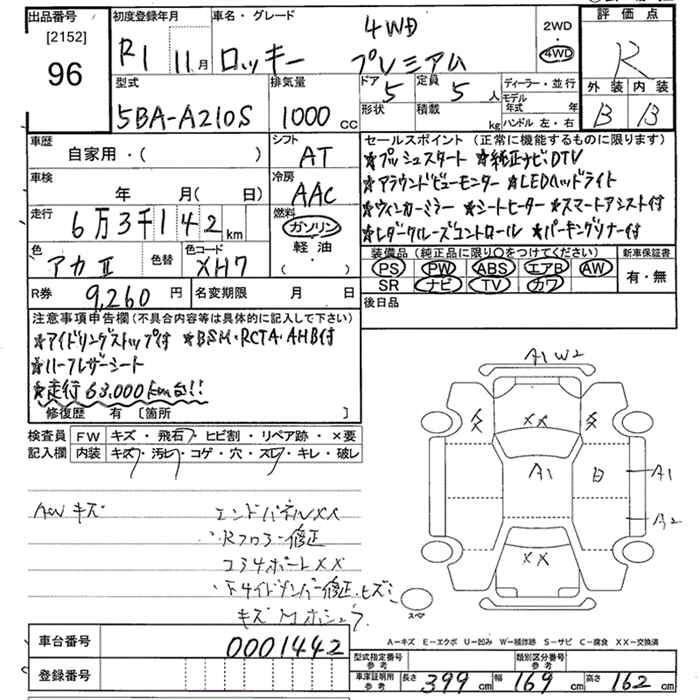 出品番号
[2152]
96
初度登録年月
R1 11月
車名・グレード
ロッキー 4WD プレミアム
2WD・4WD
評価点
R
外装 内装
B B
型式
5BA-A210S
排気量
1000cc
ドア
5
定員
5人
形状
積載
kg
ディーラー・並行
モデル年式 年
ハンドル 左・右
車歴
自家用・( )
シフト
AT
車検
年 月(日)
冷房
AAC
走行
6万3千142km
燃料
ガソリン
軽油
・( )
色
アカⅡ
色替
色コード
XH7
R券
9,260円
名変期限 月 日
セールスポイント(正常に機能するものに限ります)
★プッシュスタート ★純正ナビDTV
★アラウンドビューモニター ★LEDヘッドライト
★ウィンカーミラー ★シートヒーター ★スマートアシスト付
★レダークルーズコントロール ★パーキングソナー付
装備品(純正品に限り○をつけてください)
PS PW ABS エアB AW
SR ナビ TV カワ
新車保証書
有・無
後日品
注意事項申告欄(不具合内容等は具体的に記入して下さい)
★アイドリングストップ付 ★BSM・RCTA・AHB付
★ハーフレザーシート
★走行63,000km台!!
修復歴 有 [箇所 ]
検査員記入欄
FW キズ・飛石・ヒビ割・リペア跡・×要
内装 キズ・汚レ・コゲ・穴・スレ・キレ・破レ
AWキズ
エンドパネルXX
Rフロアー修正
コアサポートXX
キズ
A1 W2
XX
A1
A1
A2
XX
スペア
A−キズ E−エクボ U−凹み W−補修跡 S−サビ C−腐食 XX−交換済
車台番号
0001442
登録番号
型式指定番号 参考
類別区分番号 参考
車庫証明用 参考
長さ 399cm 幅 169cm 高さ 162cm